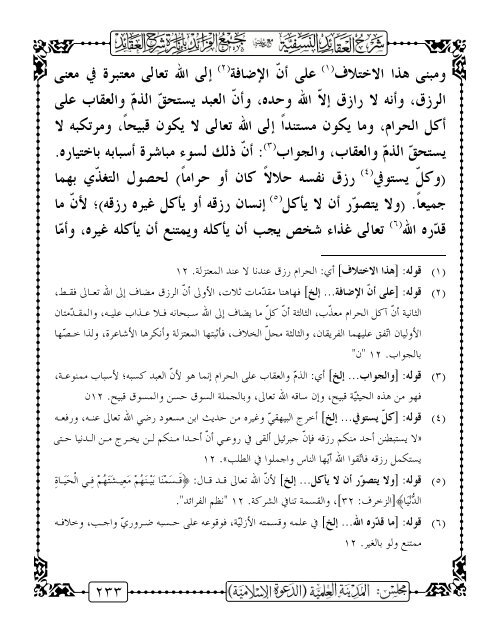 شرح العقائد النسفية مع جمع الفرائد بإنارة شرح العقائد
ومبنى هذا الاختلاف(١) على أنّ الإضافة(٢) إلى الله تعالى معتبرة في معنى
الرزق، وأنه لا رازق إلاّ الله وحده، وأنّ العبد يستحقّ الذمّ والعقاب على
أكل الحرام، وما يكون مستنداً إلى الله تعالى لا يكون قبيحاً، ومرتكبه لا
يستحقّ الذمّ والعقاب، والجواب(٣): أنّ ذلك لسوء مباشرة أسبابه باختياره.
(وكلّ يستوفي(٤) رزق نفسه حلالاً كان أو حراماً) لحصول التغذّي بهما
جميعاً. (ولا يتصوّر أن لا يأكل(٥) إنسان رزقه أو يأكل غيره رزقه)؛ لأنّ ما
قدّره الله(٦) تعالى غذاء شخص يجب أن يأكله ويمتنع أن يأكله غيره، وأمّا
(١) قوله: [هذا الاختلاف] أي: الحرام رزق عندنا لا عند المعتزلة. ١٢
(٢) قوله: [على أنّ الإضافة... إلخ] فهاهنا مقدّمات ثلاث، الأولى أنّ الرزق مضاف إلى الله تعالى فقط،
الثانية أنّ آكل الحرام معذّب، الثالثة أنّ كلّ ما يضاف إلى الله سبحانه فـلا عذاب عليـه، والمقـدّمتان
الأوليان اتّفق عليهما الفريقان، والثالثة محلّ الخلاف، فأثبتها المعتزلة وأنكرها الأشاعرة، ولذا خـصّها
بالجواب. ١٢ "ن"
(٣) قوله: [والجواب... إلخ] أي: الذمّ والعقاب على الحرام إنما هو لأنّ العبد كسبه؛ لأسباب ممنوعـة،
فهو من هذه الحيثيّة قبيح، وإن ساقه الله تعالى، وبالجملة السوق حسن والمسوق قبيح. ١٢ن
(٤) قوله: [كلّ يستوفي... إلخ] أخرج البيهقيّ وغيره من حديث ابن مسعود رضي الله تعالى عنـه، ورفعـه
«لا يستبطئن أحد منكم رزقه فإنّ جبرئيل ألقى في روعـي أنّ أحـدا مـنكم لـن يخـرج مـن الـدنيا حتـى
يستكمل رزقه فاتّقوا الله أيّها الناس واجملوا في الطلب». ١٢
(٥) قوله: [ولا يتصوّر أن لا يأكل... إلخ] لأنّ الله تعالى قـد قـال: ﴿قَسَمْنَا بَيْنَهُمْ مَعِيشَتَهُمْ فِي الْحَيَاةِ
الدُّنْيَا﴾[الزخرف: ٣٢]، والقسمة تنافي الشركة. ١٢ "نظم الفرائد".
(٦) قوله: [ما قدّره الله... إلخ] في علمه وقسمته الأزليّة، فوقوعه على حسبه ضروريّ واجـب، وخلافـه
ممتنع ولو بالغير. ١٢
مجلس: المدينة العلمية (الدعوة الإسلامية)
٢٣٣